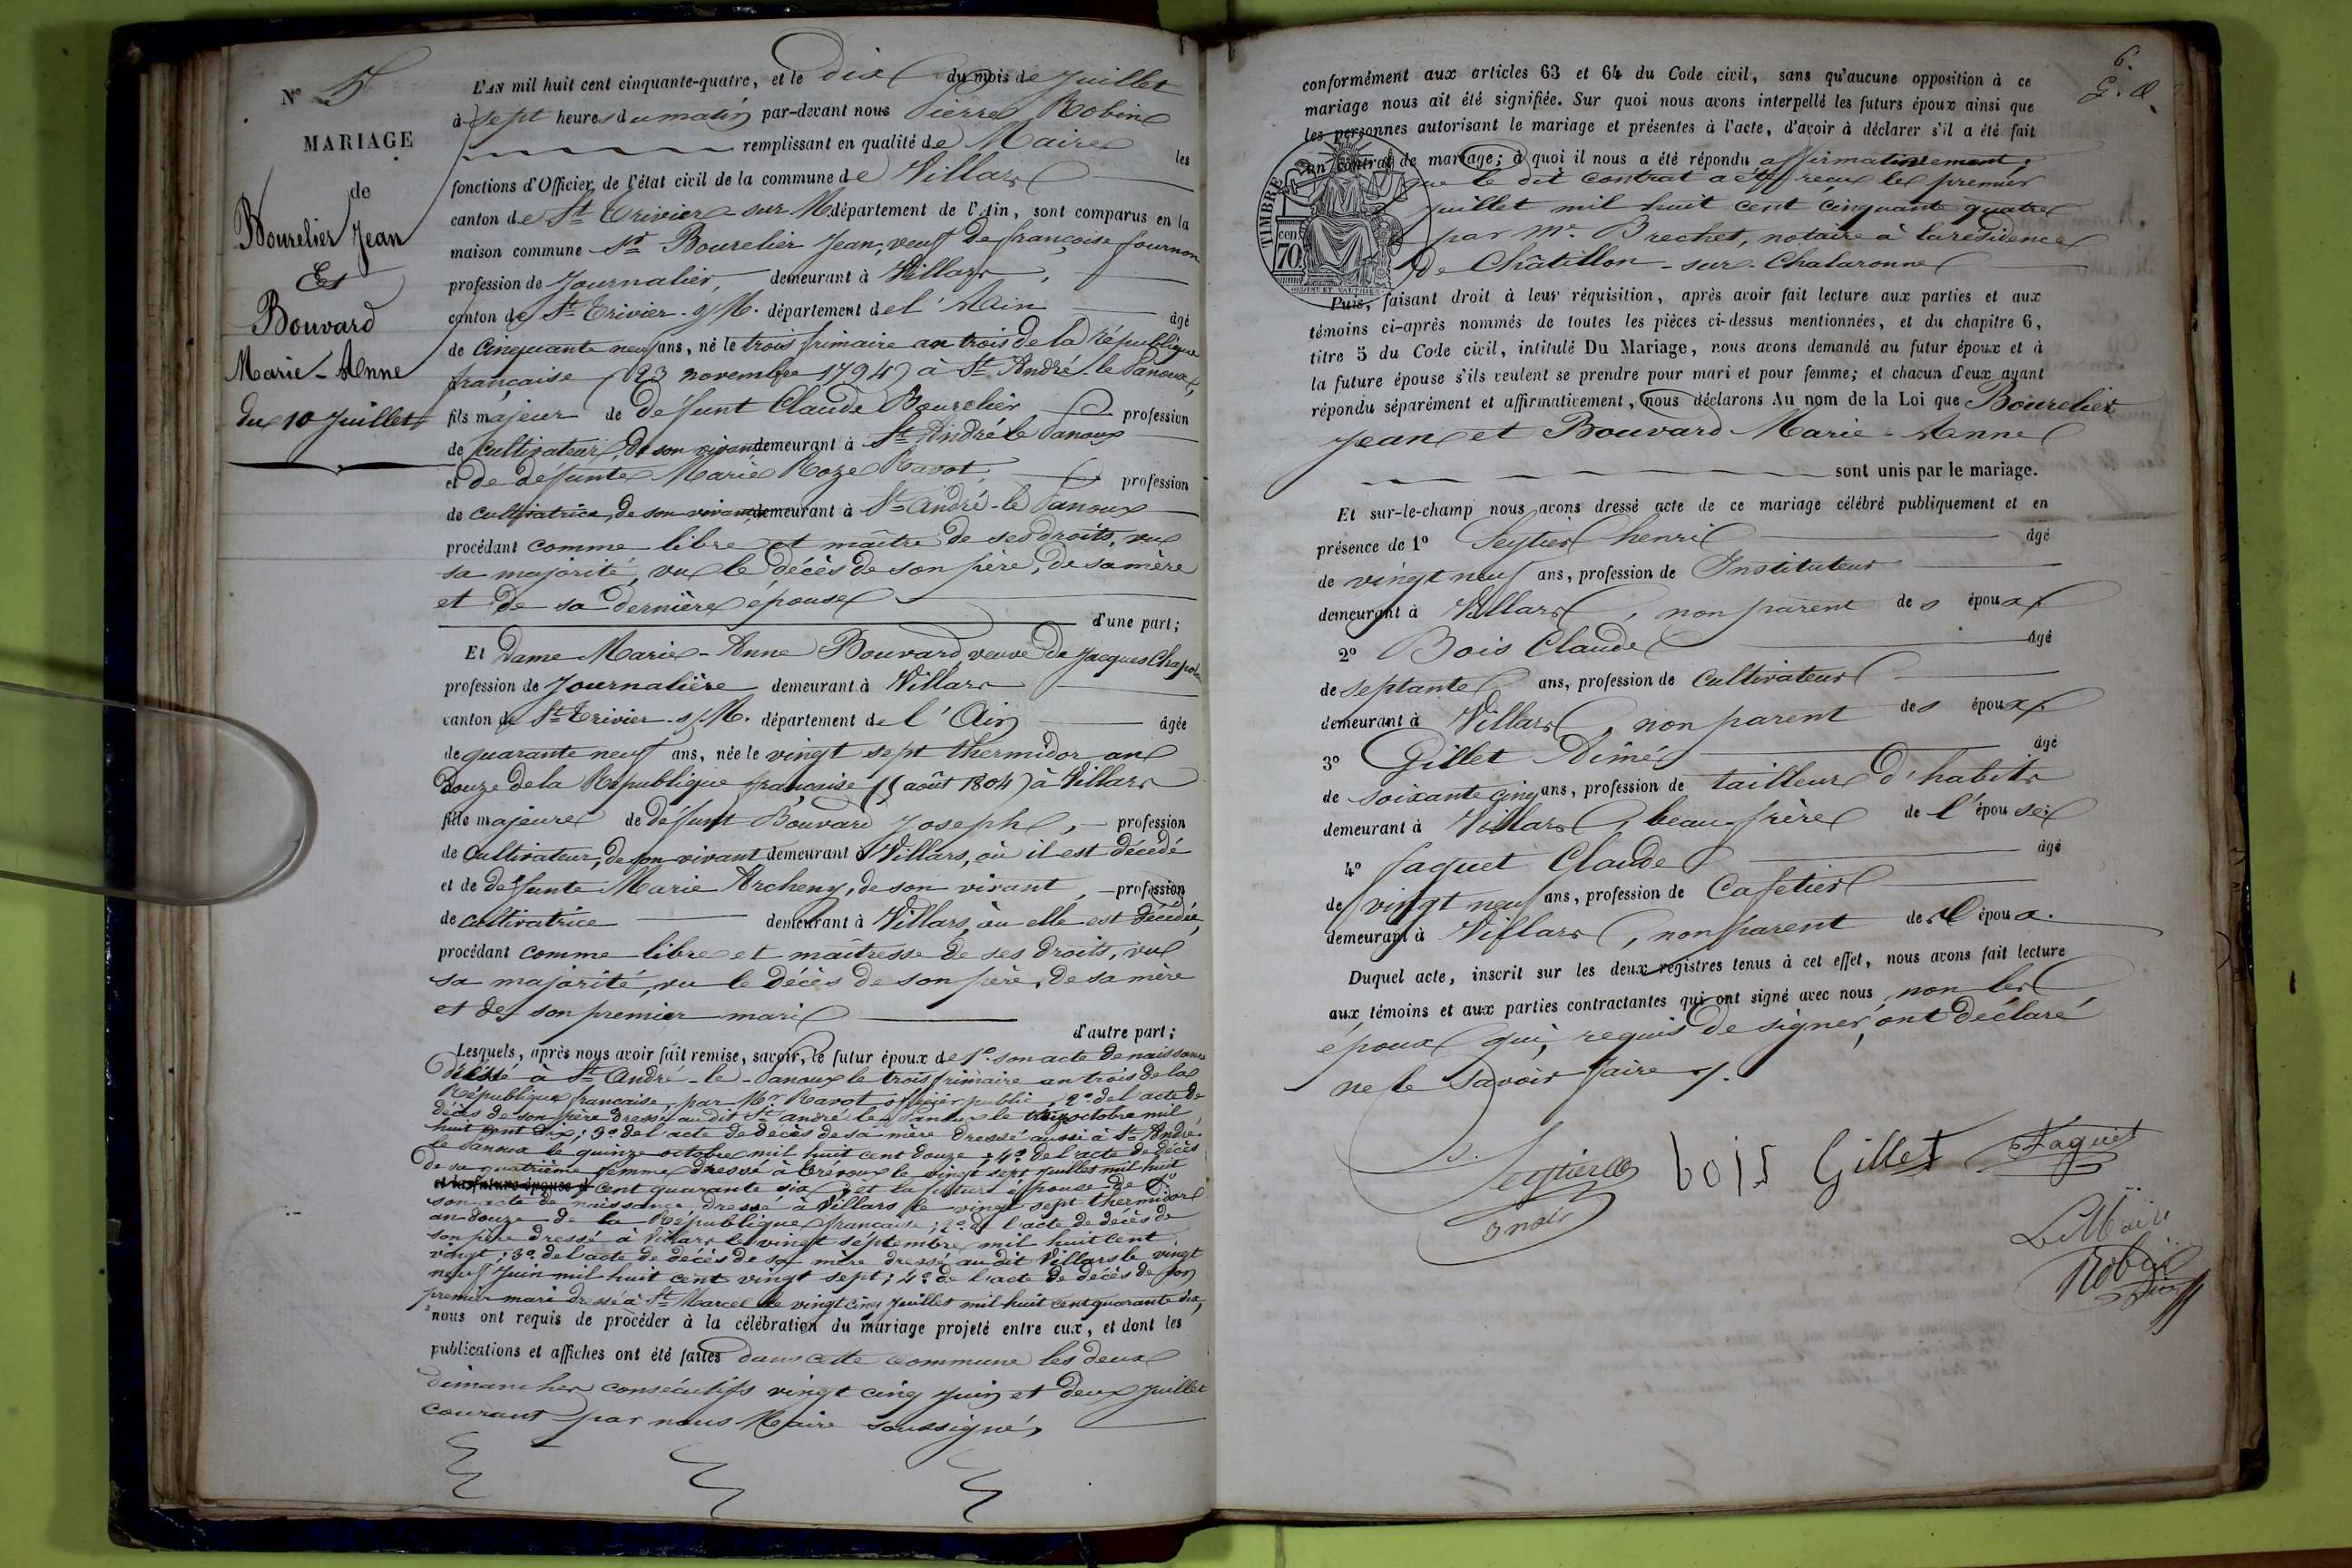 N° 5
MARIAGE
de
Bourelier Jean
Et
Bouvard
Marie-Anne
du 10 Juillet
L'AN mil huit cent cinquante-quatre, et le dix du mois de Juillet
à sept heures du matin par-devant nous Pierre Robin
remplissant en qualité de Maire les
fonctions d'Officier de l'état civil de la commune de Villars
canton de St Trivier sur M département de l'Ain, sont comparus en la
maison commune Sr Bourelier Jean, veuf de françoise fournon
profession de Journalier, demeurant à Villars,
canton de St Trivier-s/M. département de l'Ain âgé
de Cinquante neuf ans, né le trois frimaire an trois de la République
française (23 novembre 1794) à St André-le Panoux,
fils majeur de défunt Claude Bourelier profession
de Cultivateur, de son vivant demeurant à St André le Panoux
et de défunte Marie Roze Ravot profession
de Cultivatrice, de son vivant demeurant à St André-le Panoux
procédant comme libre et maître de ses droits, vu
sa majorité, vu le décès de son père, de sa mère
et de sa dernière épouse
d'une part;
Et Dame Marie-Anne Bouvard veuve de Jacques
profession de Journalière demeurant à Villars
canton de St Trivier-s/M. département de l'Ain âgée
de quarante neuf ans, née le vingt sept thermidor an
Douze de la République française ( août 1804) à Villars
fille majeure de défunt Bouvard Joseph, profession
de Cultivateur, de son vivant demeurant à Villars, où il est décédé
et de défunte Marie Archeny, de son vivant, profession
de cultivatrice demeurant à Villars, où elle est décédée,
procédant comme libre et maîtresse de ses droits, vu
sa majorité, vu le décès de son père, de sa mère
et de son premier mari
d'autre part;
Lesquels, après nous avoir fait remise, savoir, le futur époux de 1° son acte de naissance
dressé à St André-le-Panoux le trois frimaire an trois de la
République française, par Mr Ravot officier public, 2° de l'acte de
décès de son père dressé au dit St andré le Panoux le octobre mil
huit cent dix; 3° de l'acte de décès de sa mère dressé aussi à St André-
le Panoux le quinze octobre mil huit cent douze; 4° de l'acte de décès
de sa quatrième femme dressé à Trévoux le vingt sept Juillet mil huit
et la future épouse d cent quarante six; et la future épouse de 1°
son acte de naissance dressé à Villars le vingt sept thermidor
an douze de la République française; 2° de l'acte de décès de
son père dressé à Villars le vingt septembre mil huit cent
vingt; 3° de l'acte de décès de sa mère dressé au dit Villars le vingt
neuf Juin mil huit cent vingt sept; 4° de l'acte de décès de son
premier mari dressé à St Marcel le vingt cinq Juillet mil huit cent quarante six,
nous ont requis de procéder à la célébration du mariage projeté entre eux, et dont les
publications et affiches ont été faites dans cette commune les deux
dimanches consécutifs vingt cinq Juin et deux Juillet
courant par nous Maire soussigné,
6.
conformément aux articles 63 et 64 du Code civil, sans qu'aucune opposition à ce
mariage nous ait été signifiée. Sur quoi nous avons interpellé les futurs époux ainsi que
les personnes autorisant le mariage et présentes à l'acte, d'avoir à déclarer s'il a été fait
un contrat de mariage; à quoi il nous a été répondu affirmativement,
que le dit contrat a été reçu le premier
Juillet mil huit cent cinquante quatre
par Mr Brechet, notaire à la résidence
de Châtillon-sur-Chalaronne
TIMBRE
cen.
70
Puis, faisant droit à leur réquisition, après avoir fait lecture aux parties et aux
témoins ci-après nommés de toutes les pièces ci-dessus mentionnées, et du chapitre 6,
titre 5 du Code civil, intitulé Du Mariage, nous avons demandé au futur époux et à
la future épouse s'ils veulent se prendre pour mari et pour femme; et chacun d'eux ayant
répondu séparément et affirmativement, nous déclarons Au nom de la Loi que Bourelier
Jean et Bouvard Marie-Anne
sont unis par le mariage.
Et sur-le-champ nous avons dressé acte de ce mariage célébré publiquement et en
présence de 1° Seytier henri âgé
de vingt neuf ans, profession de Instituteur
demeurant à Villars, non parent des époux
2° Bois Claude âgé
de septante ans, profession de Cultivateur
demeurant à Villars, non parent des époux
3° Gillet Aimé âgé
de soixante cinq ans, profession de tailleur d'habits
demeurant à Villars, beau-frère de l'épouse
4° faquet Claude âgé
de vingt neuf ans, profession de Cafetier
demeurant à Villars, non parent des époux.
Duquel acte, inscrit sur les deux registres tenus à cet effet, nous avons fait lecture
aux témoins et aux parties contractantes qui ont signé avec nous, non les
époux qui, requis de signer, ont déclaré
ne le savoir faire.
Seytier
bois
Gillet
Faquet
Le Maire
Robin